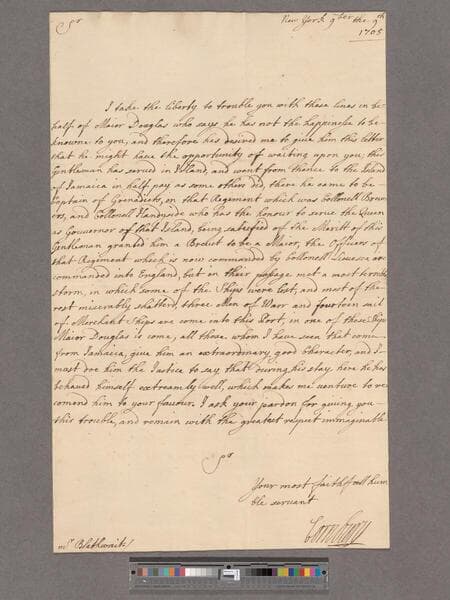 Sr
New York 9ber the 9th
1705
I take the liberty to trouble you with these lines in be-
half of Maior Douglas who says he has not the happiness to be
knowne to you, and therefore has desired me to give him this letter
that he might have the opportunity of waiting upon you, this
Gentleman has served in and went from thence to the Island
of Jamaica in half pay as some others did, there he came to be
Captain of Grenadiers, in that Regiment which was Collonell
and Collonell Handyside who has the honour to serve the Queen
as Gouvernor of that Island, being satisfied of the Meritt of this
Gentleman granted him a Brevet to be a Maior, the Officers of
that Regiment which is now commanded by Collonell are
commanded into England, but in their passage met a most terrible
storm, in which some of the Ships were lost, and most of the
rest miserably shatterd, three Men of Warr and fourteen sail
of Merchant Ships are come into this Port, in one of these Ships
Maior Douglas is come, all those whom I have seen that come
from Jamaica, give him an extraordinary good Character, and I
must doe him the Justice to say that during his stay here he has
behaved himself extreamly well, which makes me venture to re
comend him to your favour. I ask your pardon for giving you
this trouble, and remain with the greatest respect immaginable
Sr
Your most faithfull hum
ble servant
Cornbury
mr Blathwait